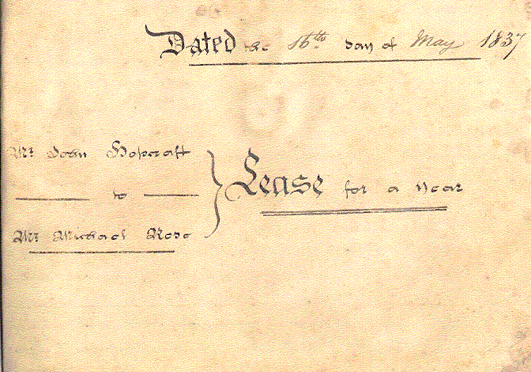 Dated the 16th day of May 1837
Mr John Hopcraft
to
Mr Michael Rose
Lease for a year